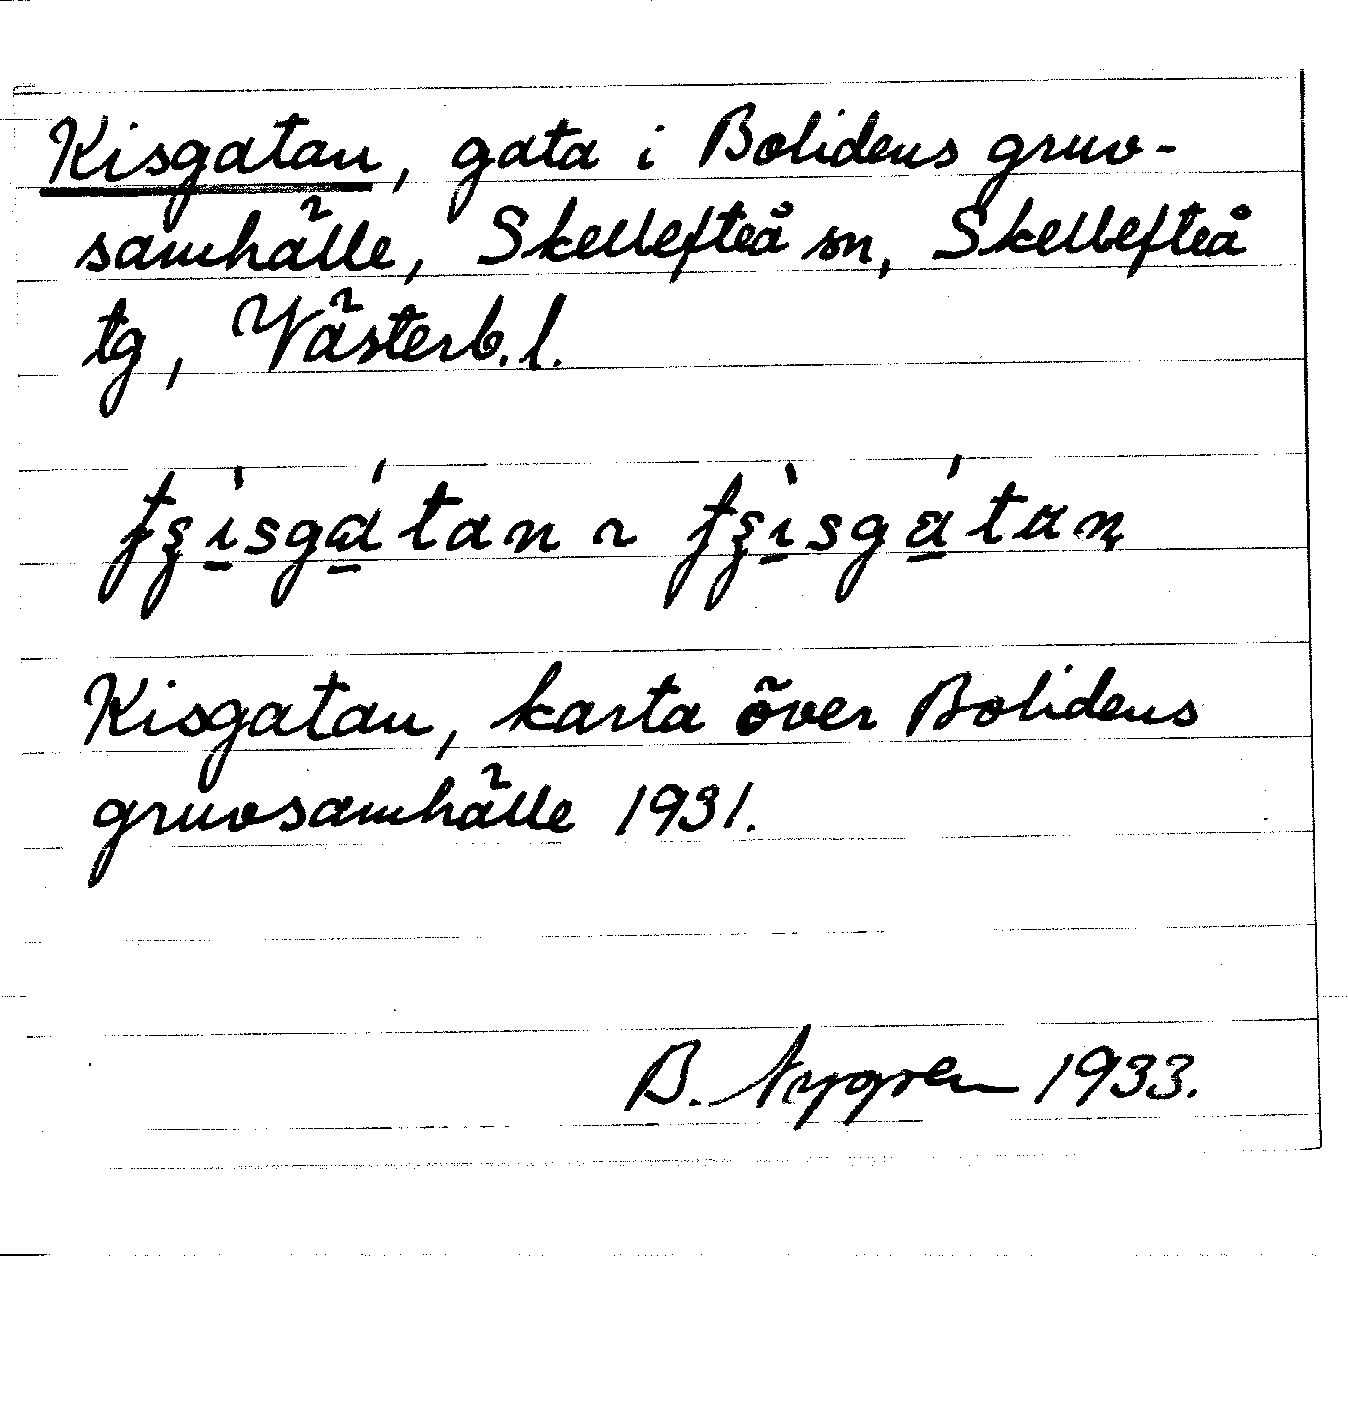 Kisgatan, gata i Bolidens gruv-
samhälle, Skellefteå sn, Skellefteå
tg, Västerb.l.
Kisgatan, karta över Bolidens
gruvsamhälle 1931.
B. Nygren 1933.